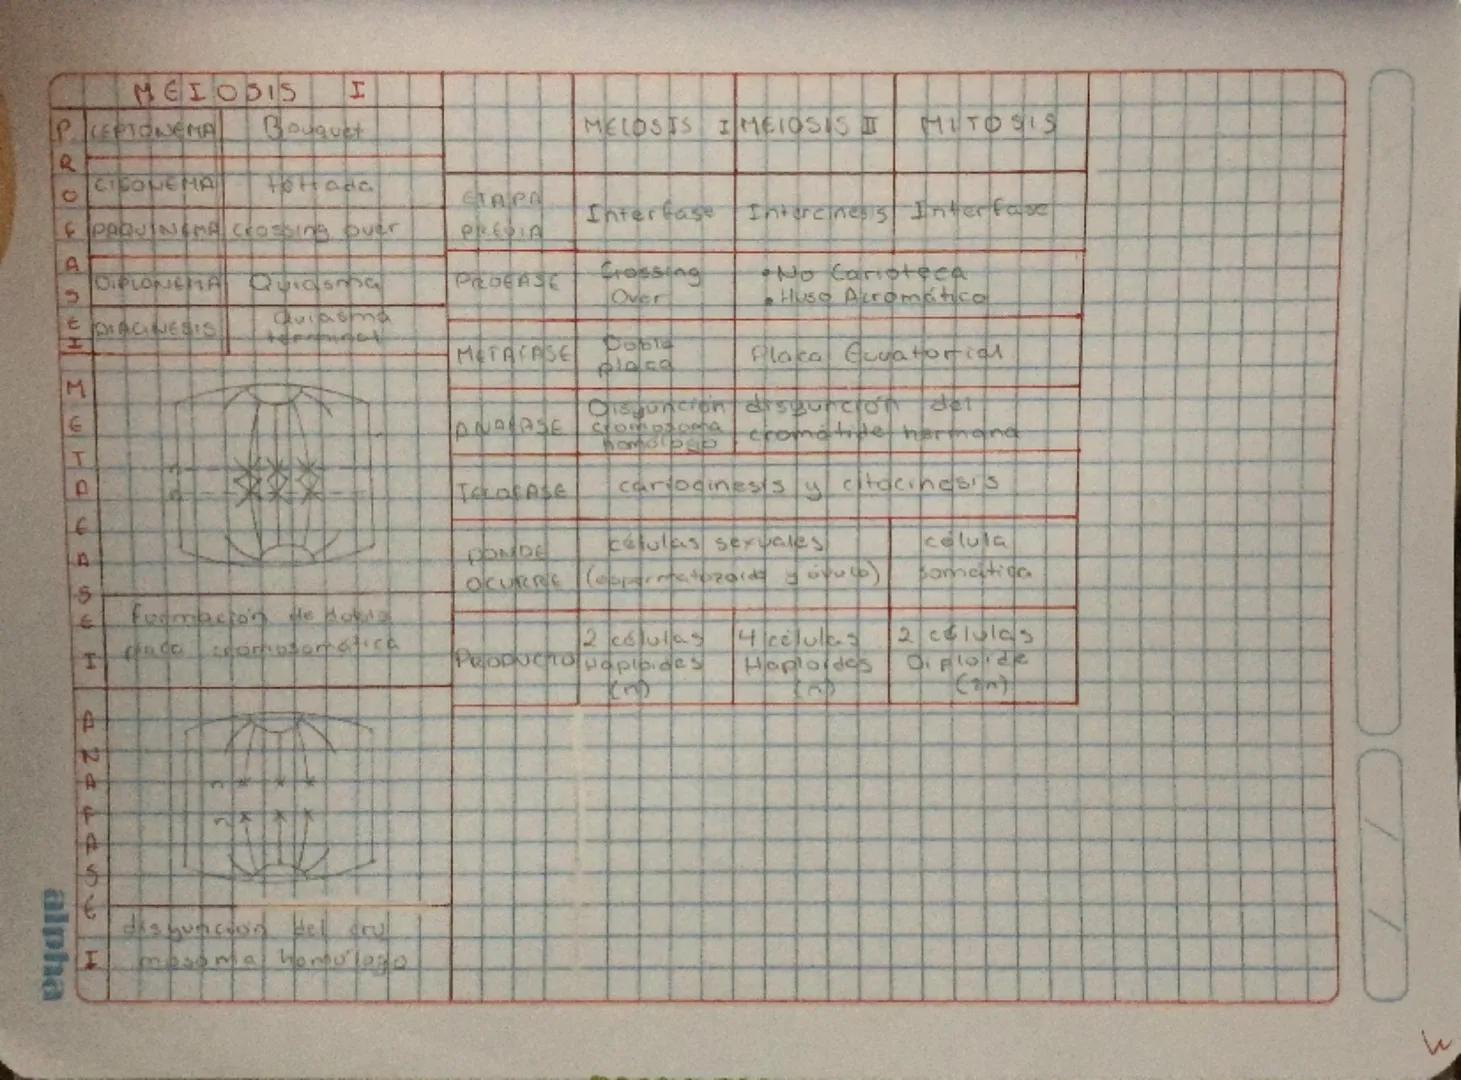 MEIOSIS I
PROFASE I
LEPTONEMA Bouquet
CIGONEMA tétrada
PAQUINEMA crossing over
DIPLONEMA Quiasma
DIACINESIS Quiasma
terminal
METAFASE I
n
n
Formación de doble
placa cromosomática
ANAFASE I
n
n
disyunción del cro
mosoma homólogo
MEIOSIS I MEIOSIS II MITOSIS
ETAPA
PREVIA
Interfase Intercinesis Interfase
PROFASE
Crossing
Over
• No Carioteca
• Huso Acromático
METAFASE
Doble
placa
Placa Ecuatorial
ANAFASE
Disyunción
cromosoma
homólogo
disyunción del
cromátide hermana
TELOFASE cariocinesis y citocinesis
DONDE
OCURRE
células sexuales
(espermatozoide y óvulo)
célula
somática
PRODUCTO
2 células
Haploides
(n)
4 células
Haploides
(n)
2 células
Diploide
(2n)
alpha